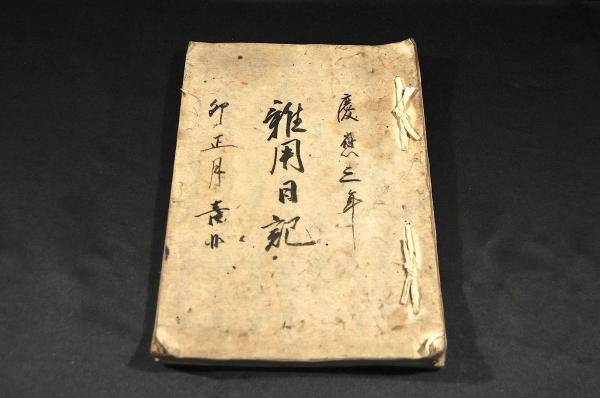 慶應三年
雜用日記
卯正月吉日